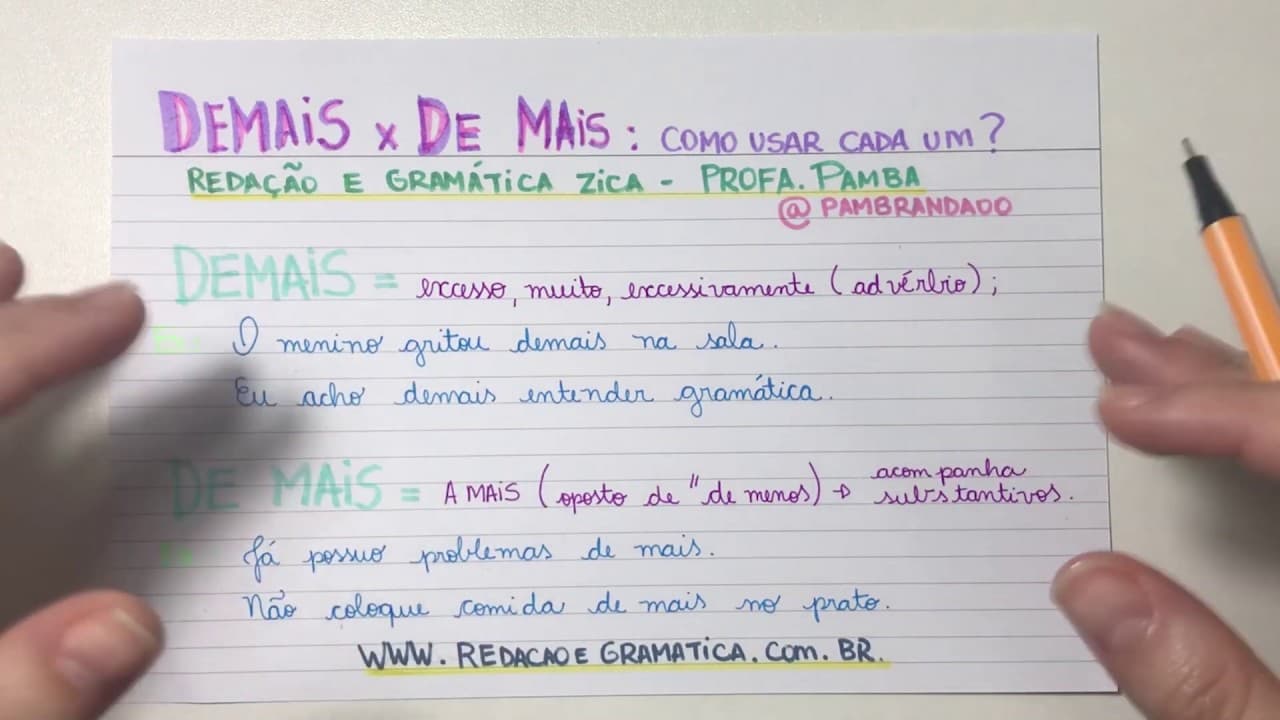 DEMAIS x DE MAIS: COMO USAR CADA UM?
REDAÇÃO E GRAMÁTICA ZICA - PROFA. PAMBA
@PAMBRANDADO
DEMAIS = excesso, muito, excessivamente (advérbio);
Ex: O menino gritou demais na sala.
Eu acho demais entender gramática.
DE MAIS = A MAIS (oposto de "de menos) → acompanha substantivos.
Ex: Já possuo problemas de mais.
Não coloque comida de mais no prato.
WWW.REDACAOEGRAMATICA.COM.BR.